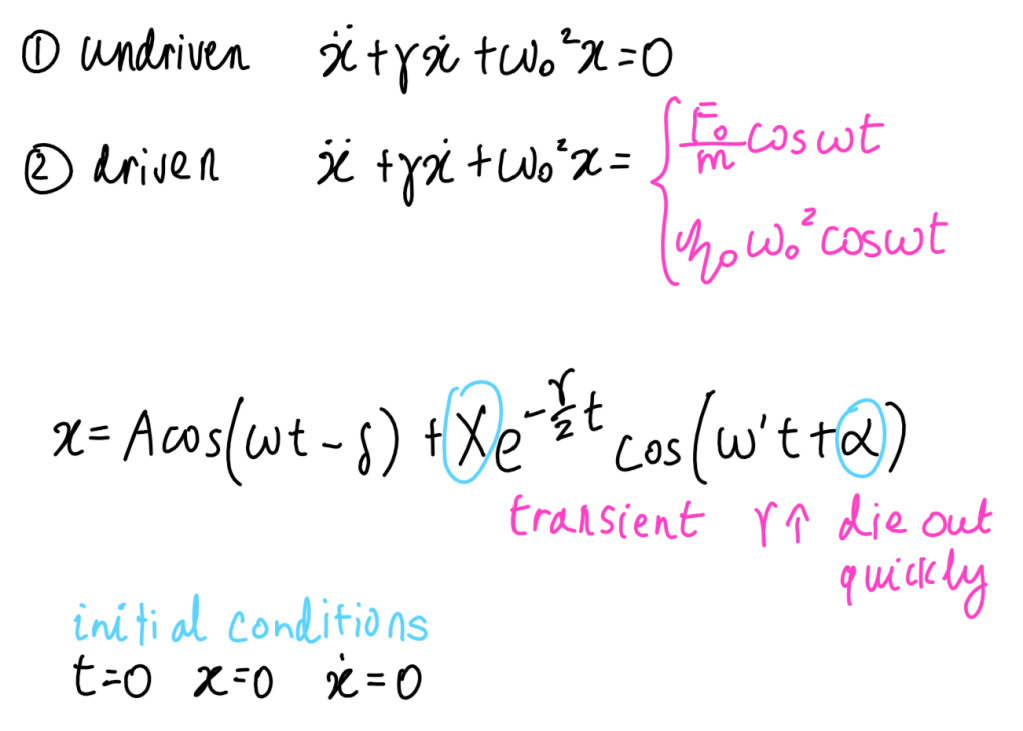 ① undriven ẍ + γẋ + ω₀²x = 0
② driven ẍ + γẋ + ω₀²x = { F₀/m cos ωt
η₀ ω₀² cos ωt
x = A cos(ωt - δ) + X e^(-γ/2 t) cos(ω't + α)
transient γ↑ die out
quickly
initial conditions
t=0 x=0 ẋ=0